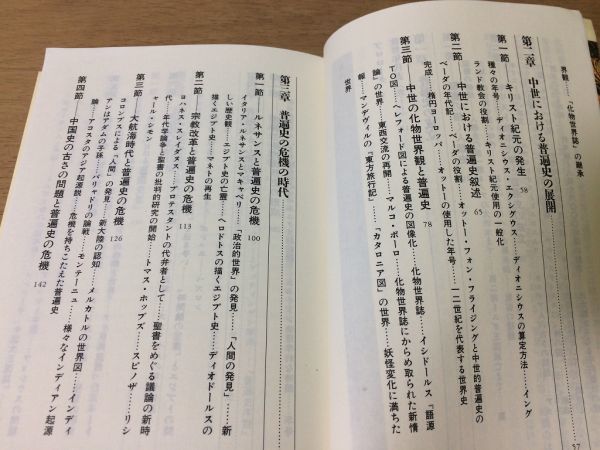 界観……「化物世界誌」の継承
第二章 中世における普遍史の展開
57
第一節 キリスト紀元の発生 58
種々の年号……ディオニシウス・エクシグウス……ディオニシウスの算定方法……イング
ランド教会の役割……キリスト紀元使用の一般化
第二節 中世における普遍史叙述 65
ベーダの年代記……ベーダの役割……オットー・フォン・フライジングと中世的普遍史の
完成……楕円ヨーロッパ……オットーの使用した年号……一二世紀を代表する世界史
第三節 中世の化物世界観と普遍史 78
TO図……ヘレフォード図による普遍史の図像化……化物世界誌……イシドールス「語源
論」の世界……東西交流の再開……マルコ・ポーロ……化物世界誌にからめ取られた新情
報……マンデヴィルの「東方旅行記」……「カタロニア図」の世界……妖怪変化に満ちた
世界
第三章 普遍史の危機の時代
第一節 ルネサンスと普遍史の危機 100
イタリア・ルネサンスとマキャベリ……「政治的世界」の発見……「人間の発見」……新
しい歴史観……エジプト史の亡霊……ヘロドトスの描くエジプト史……ディオドールスの
描くエジプト史……マネトの再生
第二節 宗教改革と普遍史の危機 113
ヨハネス・スレイダヌス……プロテスタントの代弁者として……聖書をめぐる議論の新時
代……年代学論争と聖書の批判的研究の開始……トマス・ホッブズ……スピノザ……リシ
ャール・シモン
第三節 大航海時代と普遍史の危機 126
コロンブスによる「人間」の発見……新大陸の認知……メルカトルの世界図……インディ
アンはアダムの子孫……バリャドリの論戦……モンテーニュ……様々なインディアン起源
論……アコスタのアジア起源説……危機を持ちこたえた普遍史
第四節 中国史の古さの問題と普遍史の危機 142